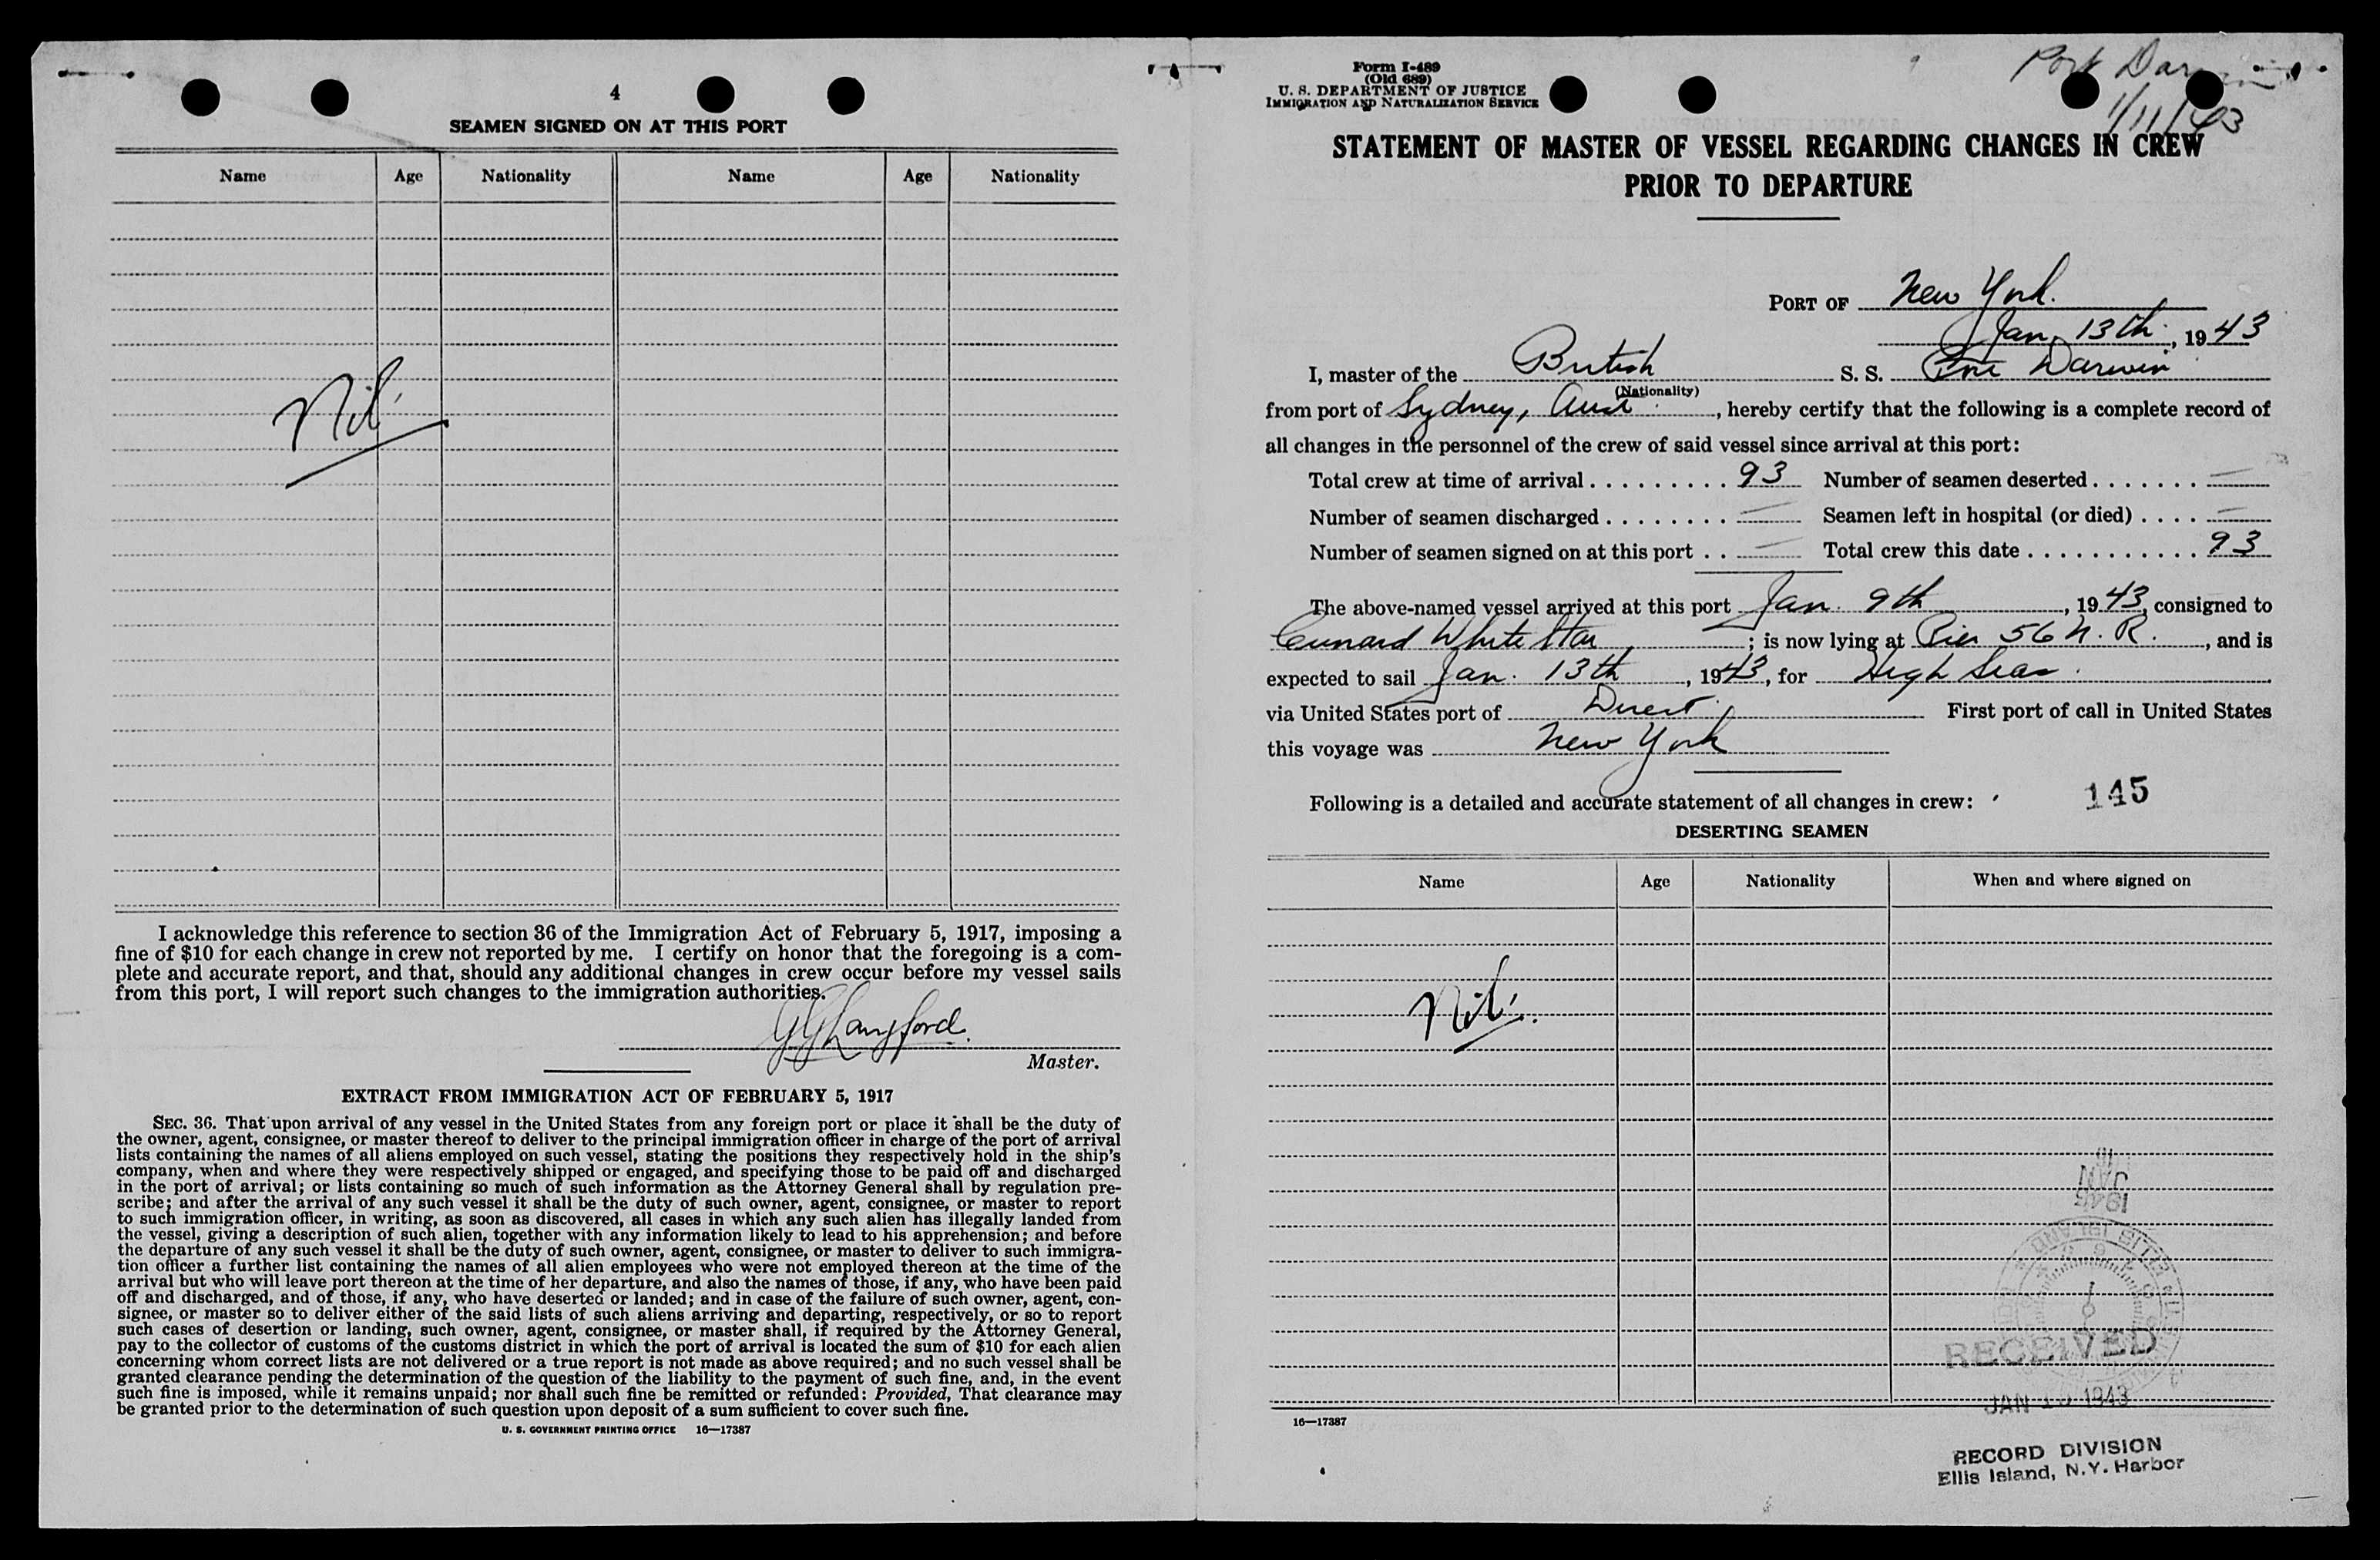 4
SEAMEN SIGNED ON AT THIS PORT
Name Age Nationality Name Age Nationality
Nil
I acknowledge this reference to section 36 of the Immigration Act of February 5, 1917, imposing a
fine of $10 for each change in crew not reported by me. I certify on honor that the foregoing is a com-
plete and accurate report, and that, should any additional changes in crew occur before my vessel sails
from this port, I will report such changes to the immigration authorities.
Langford
Master.
EXTRACT FROM IMMIGRATION ACT OF FEBRUARY 5, 1917
SEC. 36. That upon arrival of any vessel in the United States from any foreign port or place it shall be the duty of
the owner, agent, consignee, or master thereof to deliver to the principal immigration officer in charge of the port of arrival
lists containing the names of all aliens employed on such vessel, stating the positions they respectively hold in the ship's
company, when and where they were respectively shipped or engaged, and specifying those to be paid off and discharged
in the port of arrival; or lists containing so much of such information as the Attorney General shall by regulation pre-
scribe; and after the arrival of any such vessel it shall be the duty of such owner, agent, consignee, or master to report
to such immigration officer, in writing, as soon as discovered, all cases in which any such alien has illegally landed from
the vessel, giving a description of such alien, together with any information likely to lead to his apprehension; and before
the departure of any such vessel it shall be the duty of such owner, agent, consignee, or master to deliver to such immigra-
tion officer a further list containing the names of all alien employees who were not employed thereon at the time of the
arrival but who will leave port thereon at the time of her departure, and also the names of those, if any, who have been paid
off and discharged, and of those, if any, who have deserted or landed; and in case of the failure of such owner, agent, con-
signee, or master so to deliver either of the said lists of such aliens arriving and departing, respectively, or so to report
such cases of desertion or landing, such owner, agent, consignee, or master shall, if required by the Attorney General,
pay to the collector of customs of the customs district in which the port of arrival is located the sum of $10 for each alien
concerning whom correct lists are not delivered or a true report is not made as above required; and no such vessel shall be
granted clearance pending the determination of the question of the liability to the payment of such fine, and, in the event
such fine is imposed, while it remains unpaid; nor shall such fine be remitted or refunded: Provided, That clearance may
be granted prior to the determination of such question upon deposit of a sum sufficient to cover such fine.
U. S. GOVERNMENT PRINTING OFFICE 16—17387
Form I-489
(Old 689)
U. S. DEPARTMENT OF JUSTICE
IMMIGRATION AND NATURALIZATION SERVICE
Port Darwin
1/11/43
STATEMENT OF MASTER OF VESSEL REGARDING CHANGES IN CREW
PRIOR TO DEPARTURE
PORT OF New York.
Jan. 13th, 1943
I, master of the British S. S. Port Darwin
(Nationality)
from port of Sydney, Aust., hereby certify that the following is a complete record of
all changes in the personnel of the crew of said vessel since arrival at this port:
Total crew at time of arrival 93 Number of seamen deserted —
Number of seamen discharged — Seamen left in hospital (or died) —
Number of seamen signed on at this port — Total crew this date 93
The above-named vessel arrived at this port Jan. 9th, 1943, consigned to
Cunard White Star; is now lying at Pier 56 N. R., and is
expected to sail Jan. 13th, 1943, for High Seas.
via United States port of Direct. First port of call in United States
this voyage was New York
Following is a detailed and accurate statement of all changes in crew: 145
DESERTING SEAMEN
Name Age Nationality When and where signed on
Nil.
JAN
ELLIS ISLAND
RECEIVED
JAN 1943
16—17387
RECORD DIVISION
Ellis Island, N.Y. Harbor